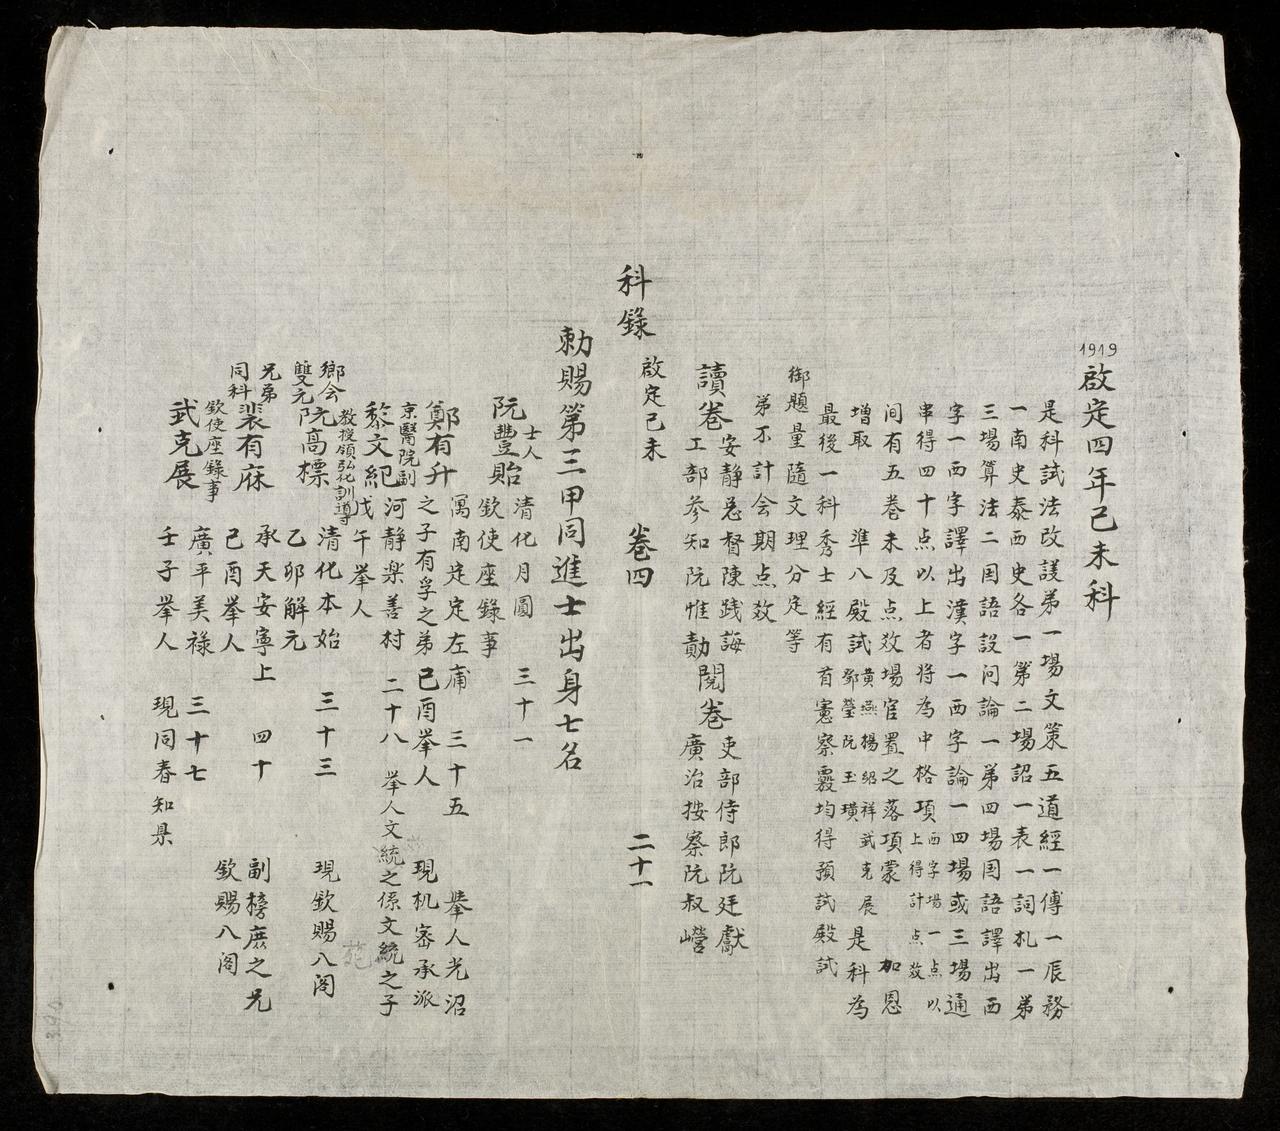 1919
啟定四年己未科
是科試法改議弟一場文策五道經一傅一辰務
一南史泰西史各一第二場詔一表一詞札一弟
三場算法二囯語設问論一弟四場囯語譯出西
字一西字譯出漢字一西字論一四場或三場通
串得四十点以上者将為中格項西字場一点以上得計点数
间有五卷未及点效場官置之落項蒙加恩
增取準八殿試黄燕楊紹祥武克展鄧瑩阮玉璜是科為
最後一科秀士經有首憲察覈均得預試殿試
御題量隨文理分定等
弟不計会期点效
讀卷安静总督陳踐誨
工部参知阮惟勣
閱卷吏部侍郎阮廷獻
廣治按察阮叔嶝
科錄
啟定己未
卷四
二十一
勅賜第三甲同進士出身七名
士人
阮豐貽
清化月圓
三十一
欽使座錄事
鄭有升
寓南定定左甫
三十五
舉人光沼
之子有孚之弟己酉举人
現机宻承派
京醫院副
黎文紀
河静楽善村
二十八
举人文統之係文統之子
戊午举人
教授領弘化訓導
鄉会雙元
阮高標
清化本始
三十三
現欽賜八阁
乙卯解元
兄弟同科
裴有庥
承天安寧上
四十
副榜庶之兄
己酉举人
欽賜八阁
欽使座錄事
武克展
廣平美禄
三十七
壬子举人
現同春知県